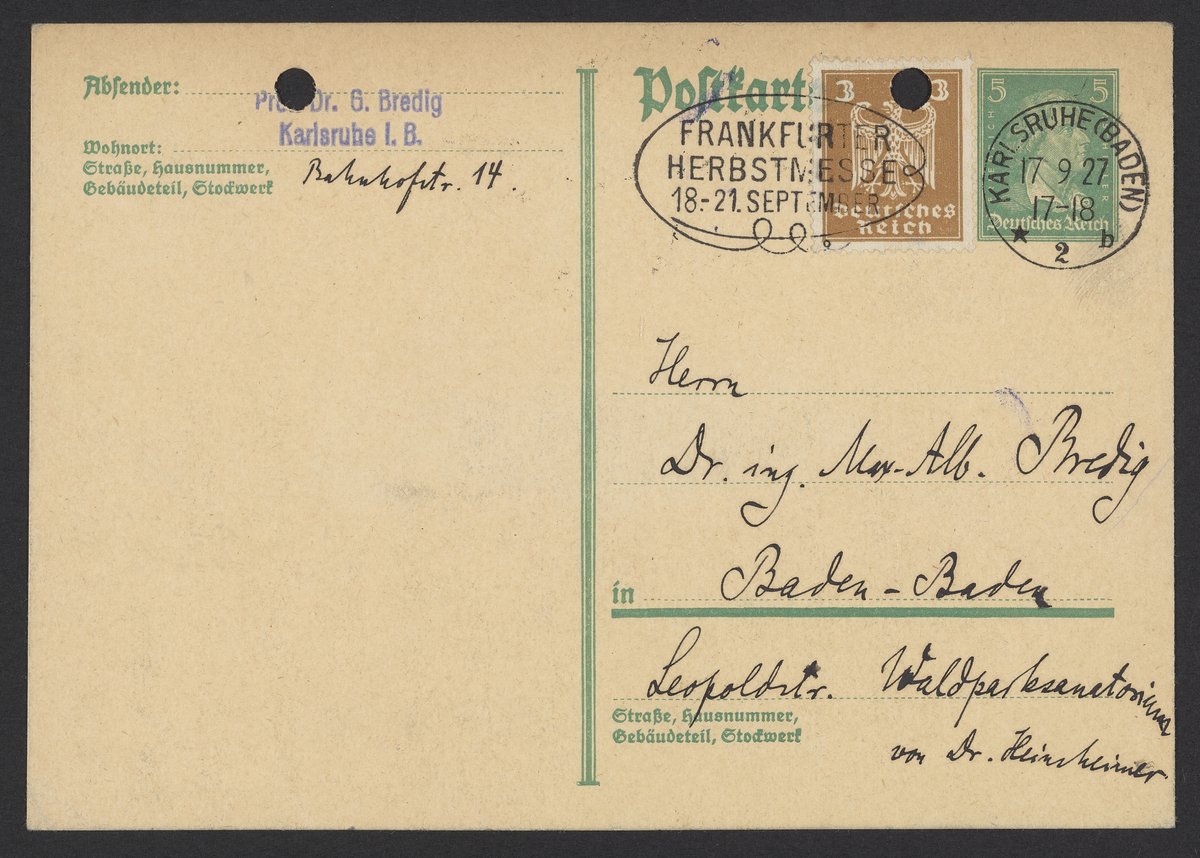 Absender:
Prof. Dr. G. Bredig
Karlsruhe I. B.
Wohnort:
Straße, Hausnummer,
Gebäudeteil, Stockwerk
Bahnhofstr. 14.
Postkarte
FRANKFURTER
HERBSTMESSE
18.-21. SEPTEMBER
3 3
Deutsches
Reich
5 5
Deutsches Reich
KARLSRUHE (BADEN)
17 9 27
17-18
* 2 b
Herrn
Dr. ing. Max-Alb. Bredig
in Baden-Baden
Leopoldstr. Waldparksanatorium
Straße, Hausnummer,
Gebäudeteil, Stockwerk
von Dr. Heinsheimer